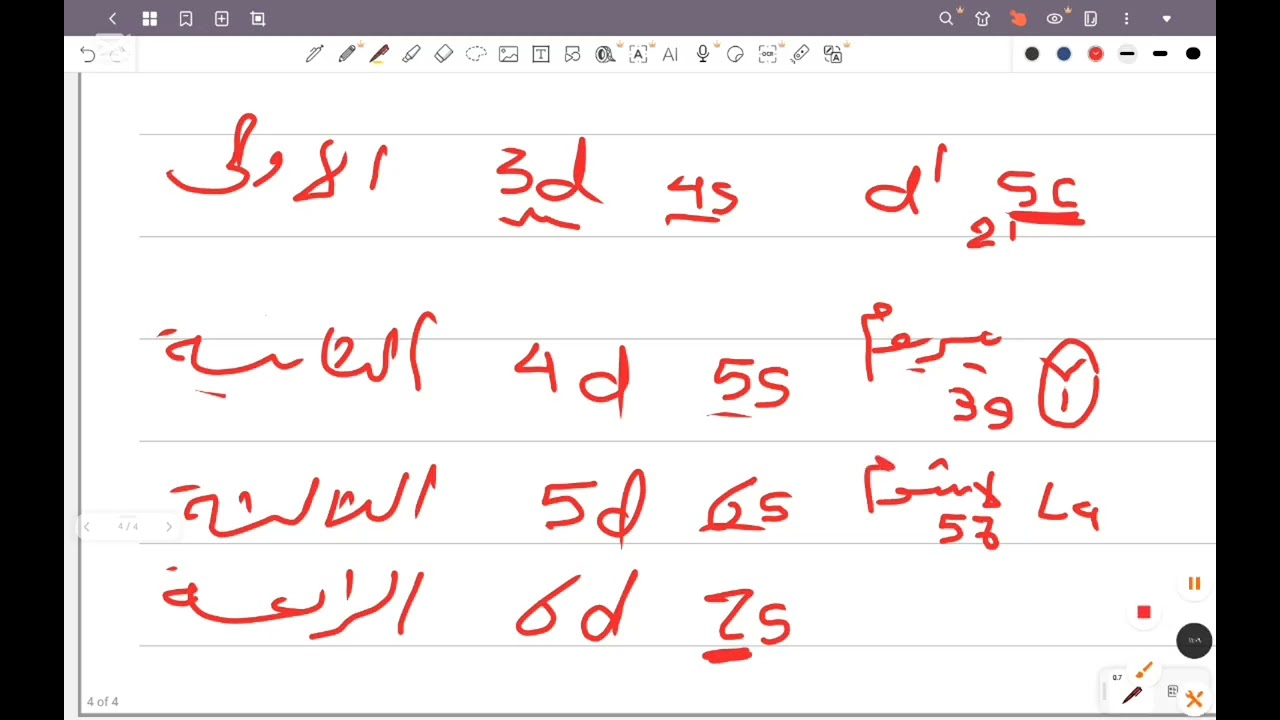 الأولى 3d 4s d¹ Sc
21
الثانية 4d 5s عنصر Y
39
الثالثة 5d 6s La
57
الرابعة 6d 7s
4/4
4 of 4
0.7